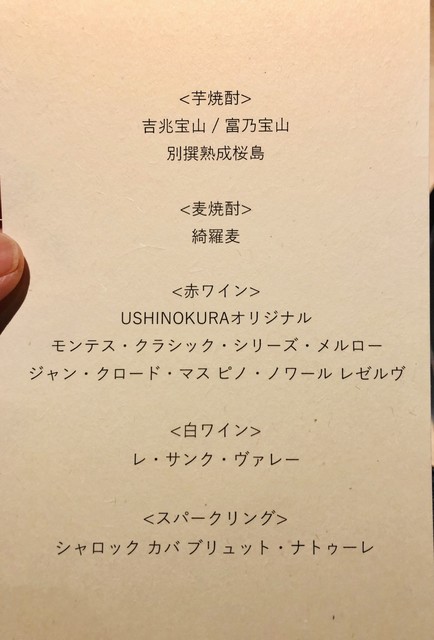 <芋焼酎>
吉兆宝山 / 富乃宝山
別撰熟成桜島
<麦焼酎>
綺羅麦
<赤ワイン>
USHINOKURAオリジナル
モンテス・クラシック・シリーズ・メルロー
ジャン・クロード・マス ピノ・ノワール レゼルヴ
<白ワイン>
レ・サンク・ヴァレー
<スパークリング>
シャロック カバ ブリュット・ナトゥーレ